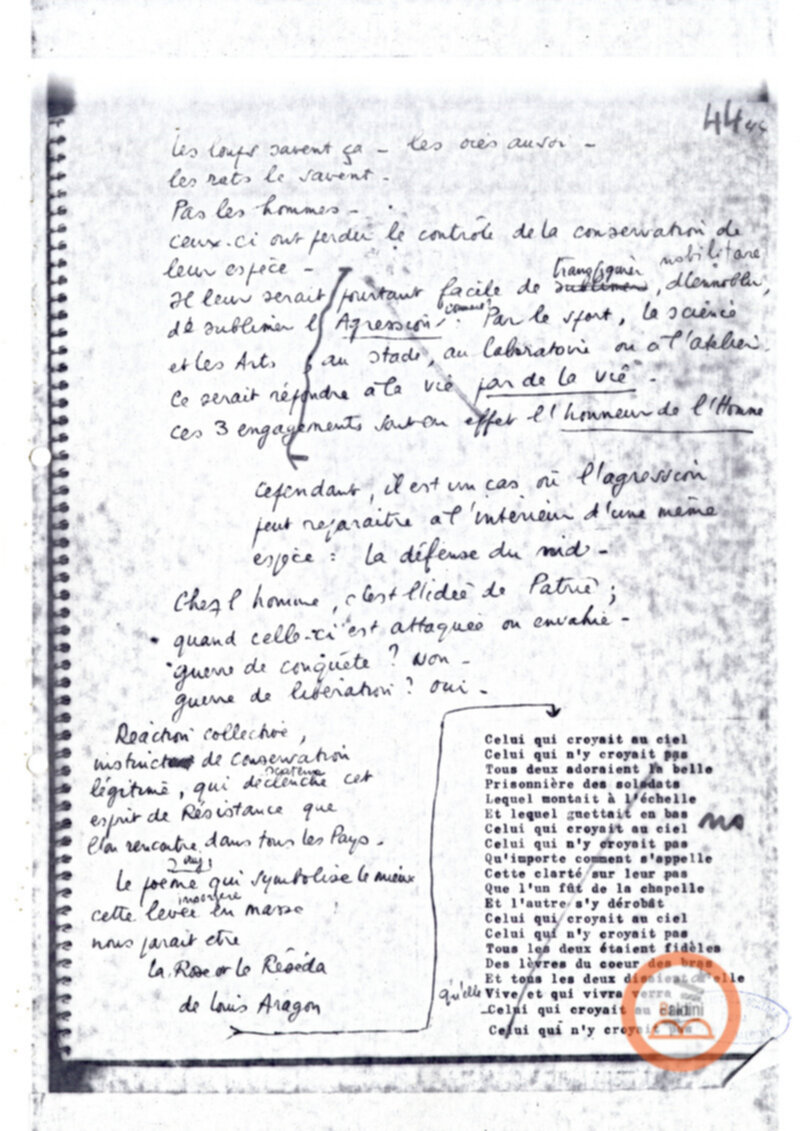 44
les loups savent ça - les oies aussi -
les rats le savent -
Pas les hommes -
ceux-ci ont perdu le contrôle de la conservation de
leur espèce -
transfigurer
Il leur serait pourtant facile de sublimer, d'ennoblir,
comment?
de sublimer l'Agression. Par le sport, la science
et les Arts : au stade, au laboratoire ou à l'atelier.
Ce serait répondre à la vie par de la vie -
ces 3 engagements sont en effet l'honneur de l'Homme
Cependant, il est un cas où l'agression
peut reparaitre à l'intérieur d'une même
espèce : la défense du nid -
Chez l'homme, c'est l'idée de Patrie ;
quand celle-ci est attaquée ou envahie -
guerre de conquête ? Non -
guerre de libération ? Oui -
Réaction collective,
instinct de conservation
légitime, qui déclenche cet
esprit de Résistance que
l'on rencontre dans tous les Pays -
Le poème qui symbolise le mieux
cette levée en masse
nous parait être
La Rose et le Réséda
de Louis Aragon
Celui qui croyait au ciel
Celui qui n'y croyait pas
Tous deux adoraient la belle
Prisonnière des soldats
Lequel montait à l'échelle
Et lequel guettait en bas
Celui qui croyait au ciel
Celui qui n'y croyait pas
Qu'importe comment s'appelle
Cette clarté sur leur pas
Que l'un fût de la chapelle
Et l'autre s'y dérobât
Celui qui croyait au ciel
Celui qui n'y croyait pas
Tous les deux étaient fidèles
Des lèvres du coeur des bras
Et tous les deux disaient qu'elle
qu'elle Vive et qui vivra verra
Celui qui croyait au
Celui qui n'y croyait pas